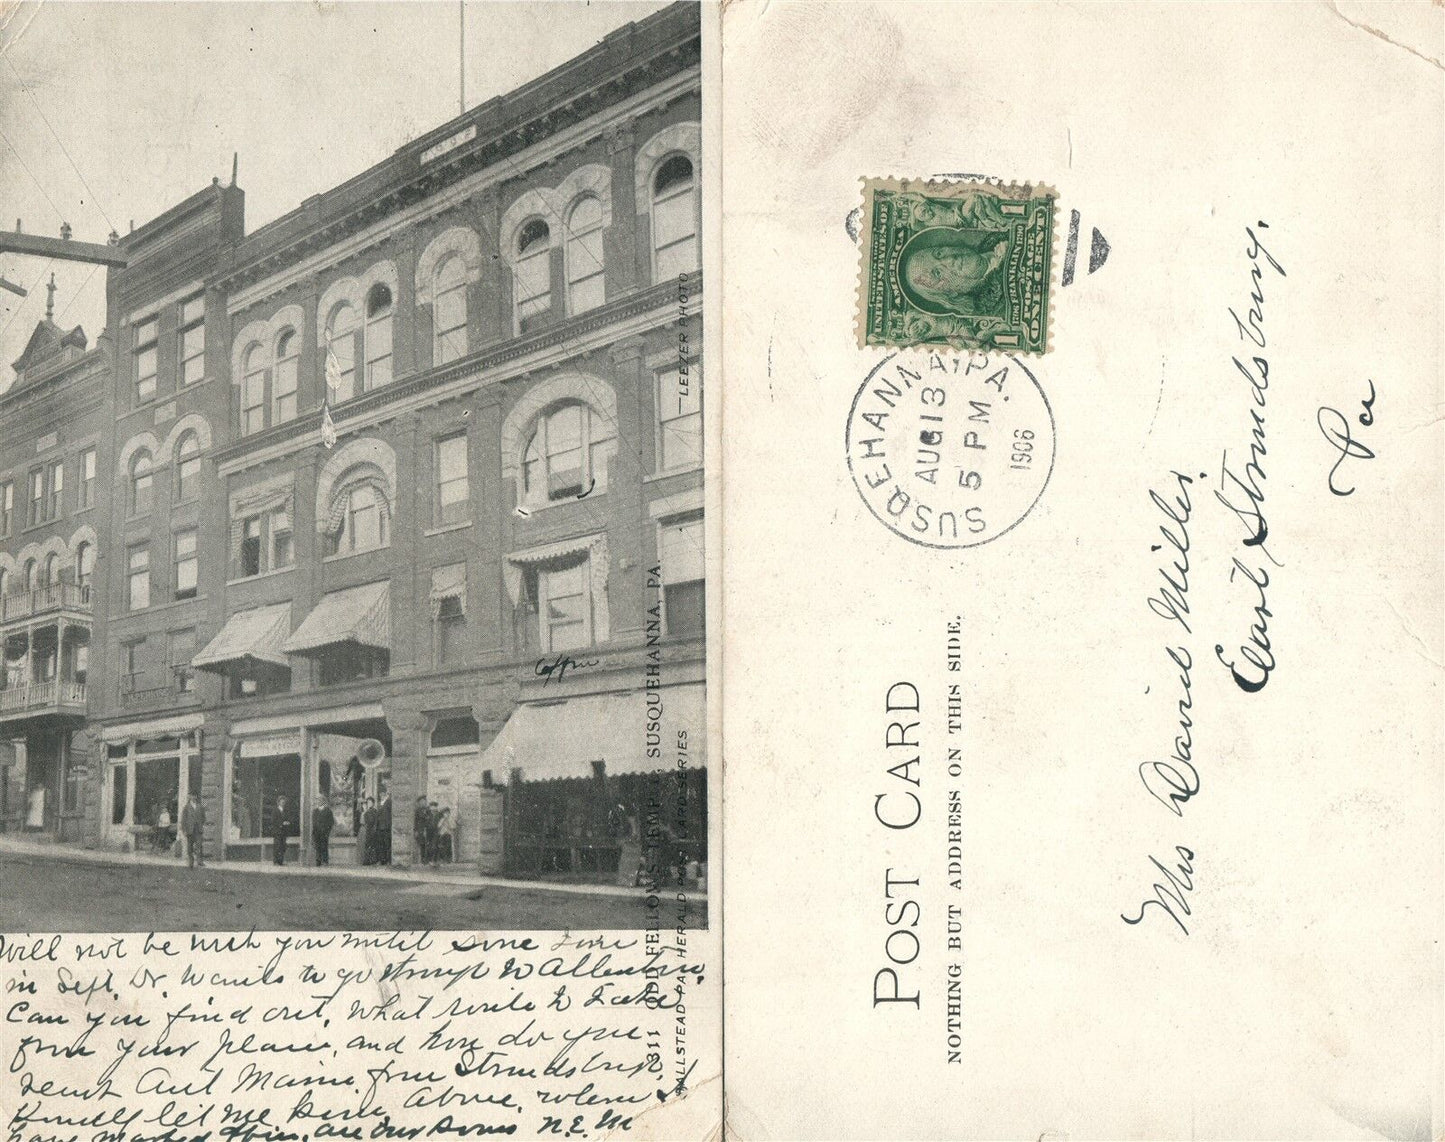 Coffin
—LEEZER PHOTO
311 ODD FELLOWS TEMPLE, SUSQUEHANNA, PA.
HALLSTEAD PA. HERALD POST CARD SERIES
Will not be with you until some time
in Sept. Dr. wants to go through to Allentown.
Can you find out, what route to take
from your place, and how do you
reach Aunt Mamie from Stroudsburg,
Kindly let me know. Above, where I
have marked this, are our rooms N.E.M
UNITED STATES OF
AMERICA
1706 FRANKLIN 1790
POSTAGE
ONE CENT
1
1
SUSQEHANNA, PA.
AUG 13
5 PM
1906
POST CARD
NOTHING BUT ADDRESS ON THIS SIDE.
Mrs David Miller
East Stroudsburg.
Pa